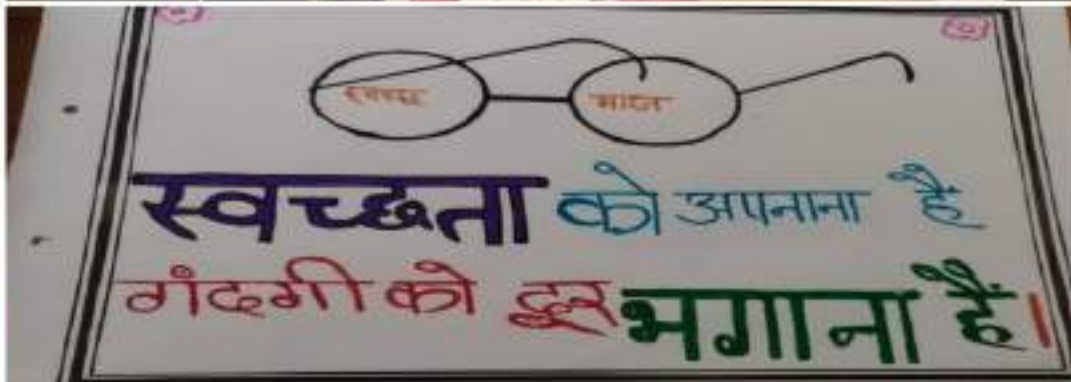 स्वच्छ भारत
स्वच्छता को अपनाना हैं
गंदगी को दूर भगाना हैं।